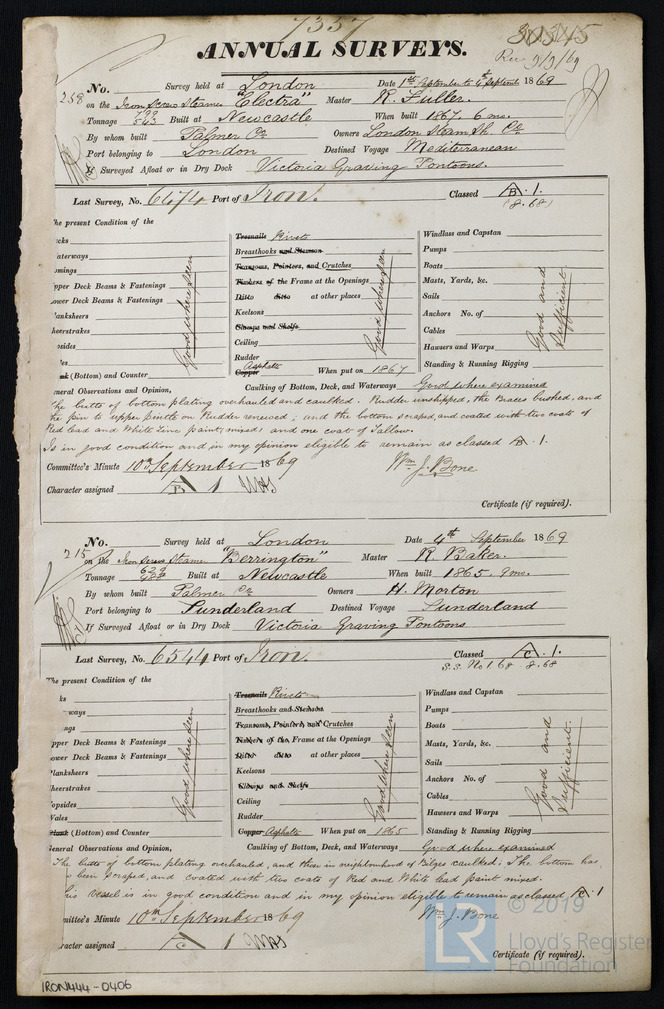 7357
30545
ANNUAL SURVEYS.
Rec 9/9/69
No. 258 Survey held at London Date 1st September to 4th Septemr 1869
on the Iron Screw Steamer "Electra" Master R. Fuller.
Tonnage 543 Built at Newcastle When built 1867. 6 mo.
By whom built Palmer Co Owners London Steam Sh. Co
Port belonging to London Destined Voyage Mediterranean
If Surveyed Afloat or in Dry Dock Victoria Graving Pontoons.
Last Survey, No. 6474 Port of Iron. Classed A B. 1.
(8.68)
The present Condition of the
cks
aterways
omings
pper Deck Beams & Fastenings
ower Deck Beams & Fastenings
lanksheers
heerstrakes
opsides
les
(Bottom) and Counter
Good where seen
Treenails Rivets
Breasthooks and Stemson
Transoms, Pointers, and Crutches
Timbers of the Frame at the Openings
Ditto ditto at other places
Keelsons
Clamps and Shelfs
Ceiling
Rudder
Copper Asphalte When put on 1867
Good where seen
Windlass and Capstan
Pumps
Boats
Masts, Yards, &c.
Sails
Anchors No. of
Cables
Hawsers and Warps
Standing & Running Rigging
Good and Sufficient.
eneral Observations and Opinion, Caulking of Bottom, Deck, and Waterways Good where examined
The butts of bottom plating overhauled and caulked. Rudder unshipped, the Braces bushed, and
the pin to upper pintle on Rudder renewed, and the bottom scraped, and coated with two coats of
Red lead and White Zinc paint, mixed, and one coat of Tallow.
Is in good condition and in my opinion eligible to remain as classed B. 1.
Committee's Minute 10th September 1869 Wm J. Bone
Character assigned B 1
Certificate (if required).
No. 215 Survey held at London Date 4th September 1869
on the Iron Screw Steamer "Berrington" Master R Baker.
Tonnage Built at Newcastle When built 1865. 9 mo.
By whom built Palmer Co Owners H. Morton
Port belonging to Sunderland Destined Voyage Sunderland
If Surveyed Afloat or in Dry Dock Victoria Graving Pontoons
Last Survey, No. 6544 Port of Iron. Classed A C. 1.
S.S. No 1 68 8.68
The present Condition of the
ks
rways
ngs
pper Deck Beams & Fastenings
ower Deck Beams & Fastenings
lanksheers
heerstrakes
opsides
Wales
Plank (Bottom) and Counter
Good where seen
Treenails Rivets
Breasthooks and Stemson
Transoms, Pointers, and Crutches
Timbers of the Frame at the Openings
Ditto ditto at other places
Keelsons
Clamps and Shelfs
Ceiling
Rudder
Copper Asphalte When put on 1865
Good where seen
Windlass and Capstan
Pumps
Boats
Masts, Yards, &c.
Sails
Anchors No. of
Cables
Hawsers and Warps
Standing & Running Rigging
Good and Sufficient.
General Observations and Opinion, Caulking of Bottom, Deck, and Waterways Good where examined
The butts of bottom plating overhauled, and those in neighbourhood of Bilges caulked; The bottom has
been scraped, and coated with two coats of Red and White lead paint mixed.
his vessel is in good condition and in my opinion eligible to remain as classed 1
mittee's Minute 10th September 1869 Wm J. Bone
aracter assigned C 1
Certificate (if required).
© 2019
LR
Lloyd's Register
Foundation
IRON444-0406